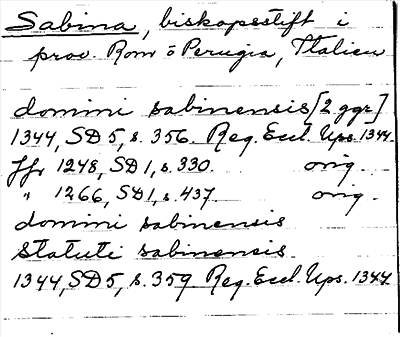 Sabina, biskopsstift i
prov. Rom o Perugia, Italien
domini sabinensis [2 ggr]
1344, SD 5, s. 356. Reg. Eccl. Ups. 1344.
Jfr 1248, SD 1, s. 330. orig.
" 1266, SD 1, s. 437. orig.
domini sabinensis
statuti sabinensis.
1344, SD 5, s. 359 Reg. Eccl. Ups. 1344